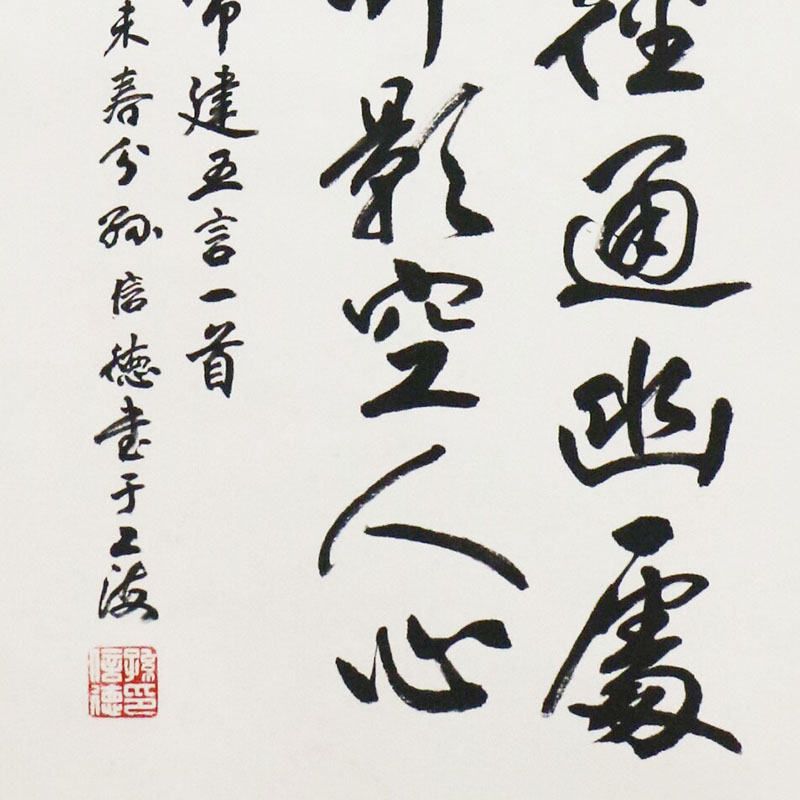 徑通幽處
影空人心
建五言一首
未春分孫信德書于上海
孫印信德